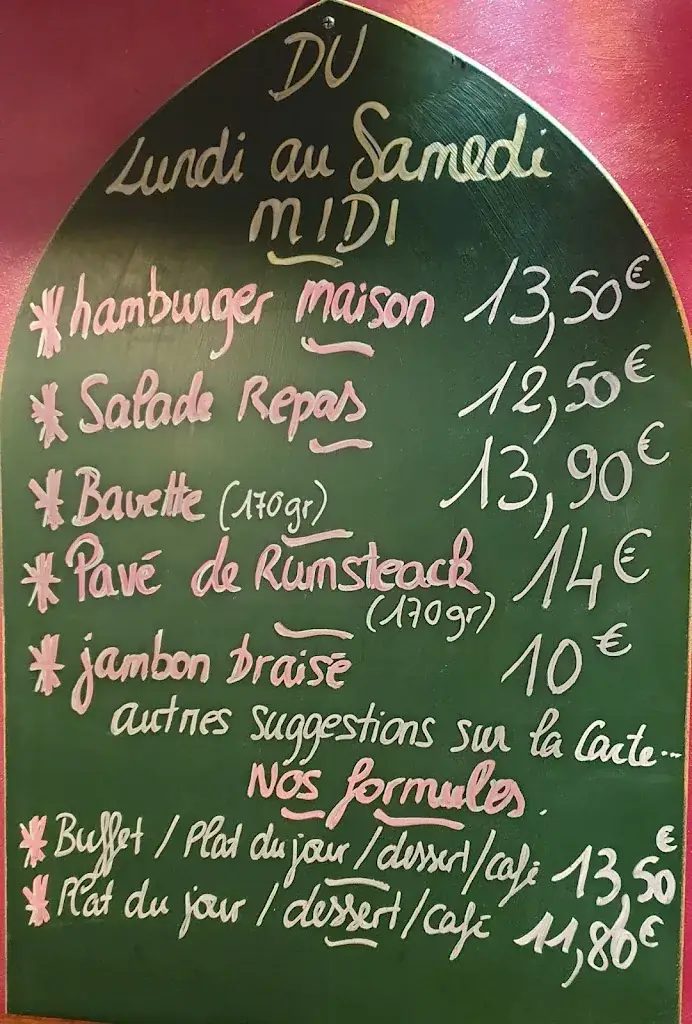 DU
Lundi au Samedi
MIDI
* hamburger maison 13,50€
* Salade Repas 12,50€
* Bavette (170gr) 13,90€
* Pavé de Rumsteack 14€
(170gr)
* jambon braisé 10€
autres suggestions sur la Carte...
Nos formules.
* Buffet / Plat du jour / dessert / café 13,50€
* Plat du jour / dessert / café 11,80€